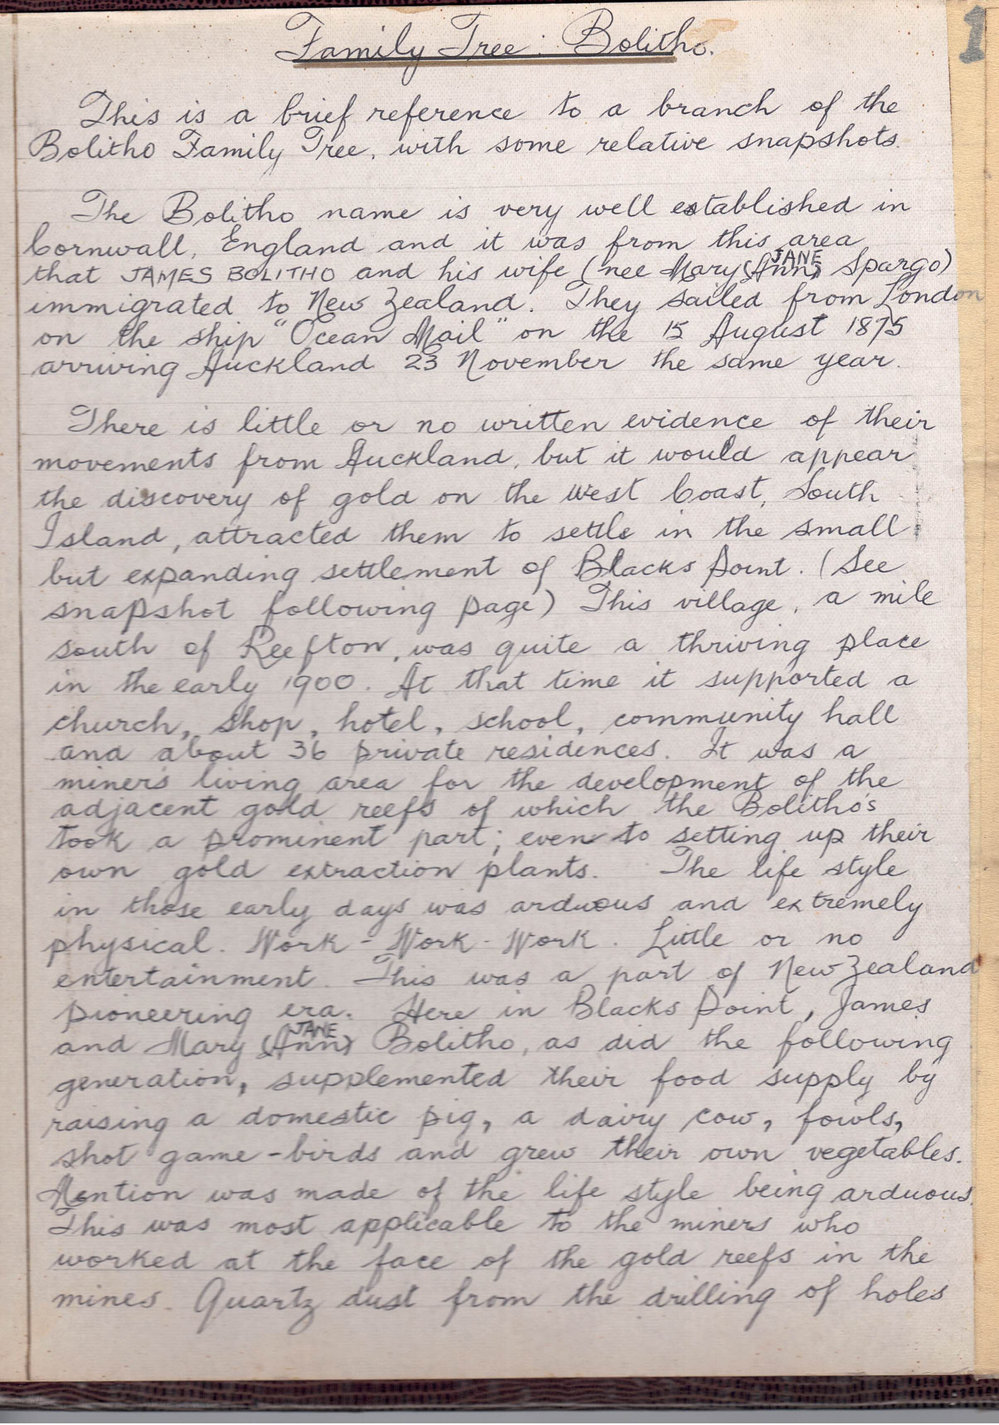 1
Family Tree : Bolitho.
This is a brief reference to a branch of the
Bolitho Family Tree, with some relative snapshots.
The Bolitho name is very well established in
Cornwall, England and it was from this area
that JAMES BOLITHO and his wife (nee Mary (Ann) JANE Spargo)
immigrated to New Zealand. They sailed from London
on the ship "Ocean Mail" on the 15 August 1875
arriving Auckland 23 November the same year.
There is little or no written evidence of their
movements from Auckland, but it would appear
the discovery of gold on the West Coast, South
Island, attracted them to settle in the small
but expanding settlement of Blacks Point. (See
snapshot following page) This village, a mile
south of Reefton, was quite a thriving place
in the early 1900. At that time it supported a
church, shop, hotel, school, community hall
and about 36 private residences. It was a
miner's living area for the development of the
adjacent gold reefs of which the Bolitho's
took a prominent part; even to setting up their
own gold extraction plants. The life style
in those early days was arduous and extremely
physical. Work - Work - Work. Little or no
entertainment. This was a part of New Zealand
pioneering era. Here in Blacks Point, James
and Mary (Ann) JANE Bolitho, as did the following
generation, supplemented their food supply by
raising a domestic pig, a dairy cow, fowls,
shot game-birds and grew their own vegetables.
Mention was made of the life style being arduous.
This was most applicable to the miners who
worked at the face of the gold reefs in the
mines. Quartz dust from the drilling of holes